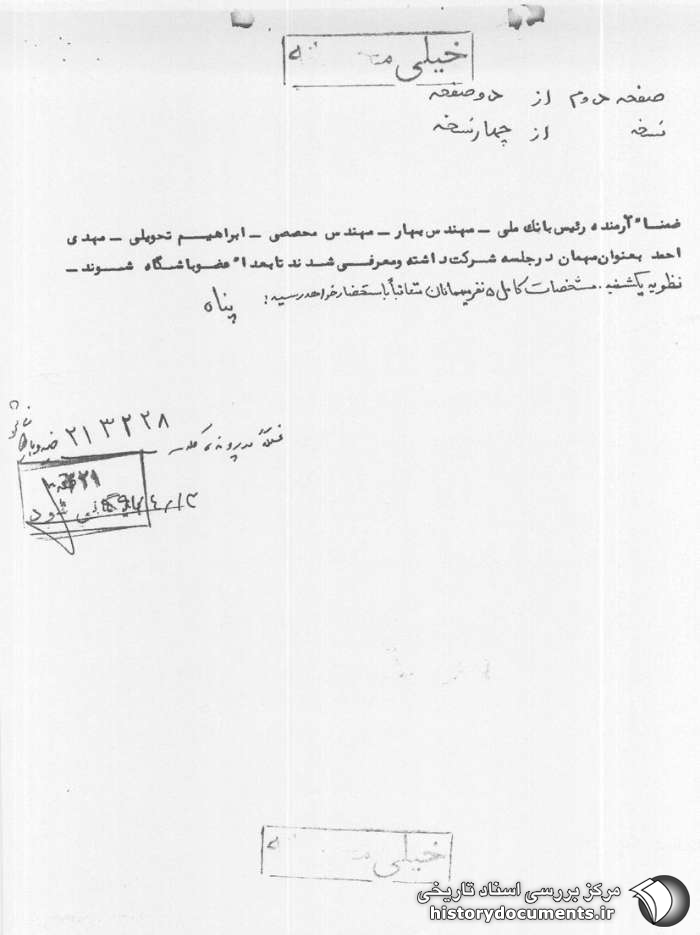 خیلی
صفحه دوم از دو صفحه
نسخه از چهار نسخه
ضمنا" آرمنده رئیس بانک ملی - مهندس بهار - مهندس محصصی - ابراهیم تحویلی - مهدی
احمد بعنوان میهمان در جلسه شرکت داشته و معرفی شدند تا بعدا" عضو باشگاه شوند -
نظریه یکشنبه. مشخصات کامل ۵ نفر میهمانان متعاقباً باستحضار خواهد رسید. پناه
۲۱۳۲۲۸
شود
خیلی
مرکز بررسی اسناد تاریخی
historydocuments.ir